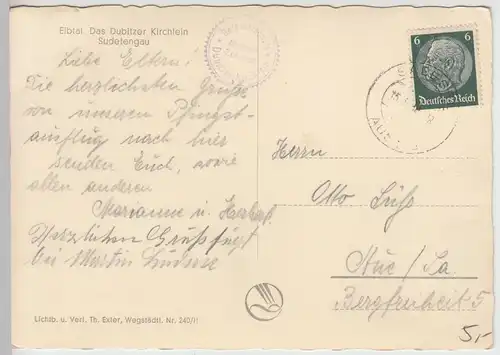 Elbtal. Das Dubitzer Kirchlein
Sudetengau
Liebe Eltern!
Die herzlichsten Grüße
von unseren Pfingst-
ausflug nach hier
senden Euch, sowie
allen anderen
Marianne u. Herbert
Herzlichen Gruß fügt
bei Martin
Lichtb. u. Verl. Th. Exler, Wegstädtl. Nr. 240/H
6 6
Deutsches Reich
Herrn
Otto Süß
Aue / Sa
Bergfreiheit 5
5,-